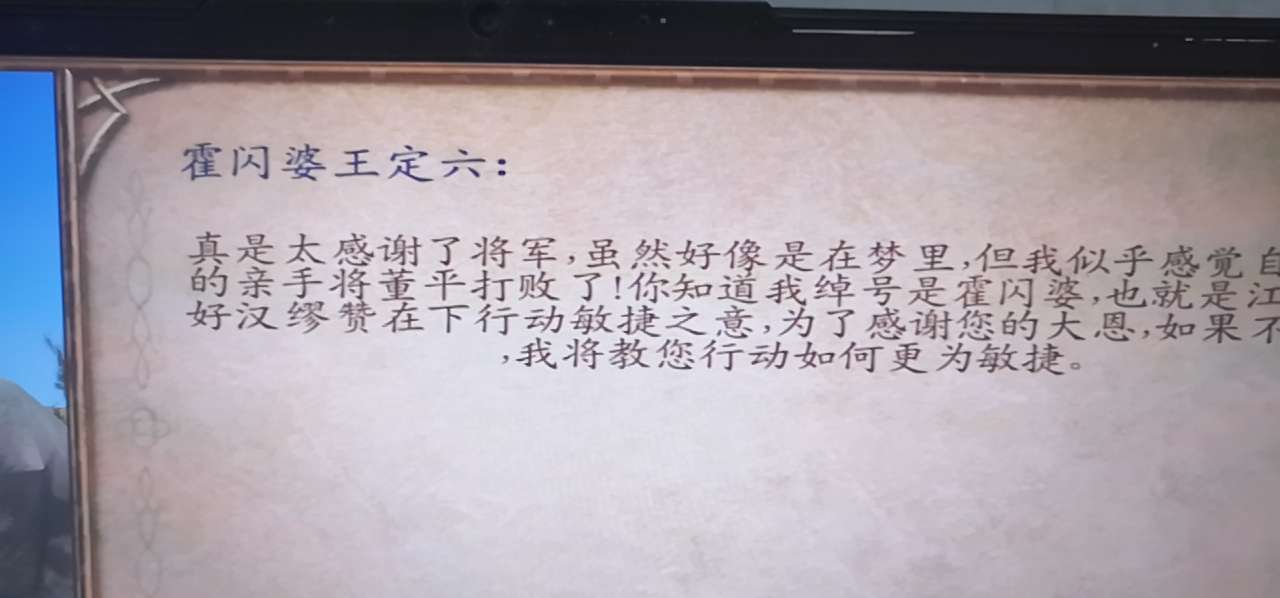 霍闪婆王定六：
真是太感谢了将军，虽然好像是在梦里，但我似乎感觉自
的亲手将董平打败了！你知道我绰号是霍闪婆，也就是江
好汉缪赞在下行动敏捷之意，为了感谢您的大恩，如果不
，我将教您行动如何更为敏捷。